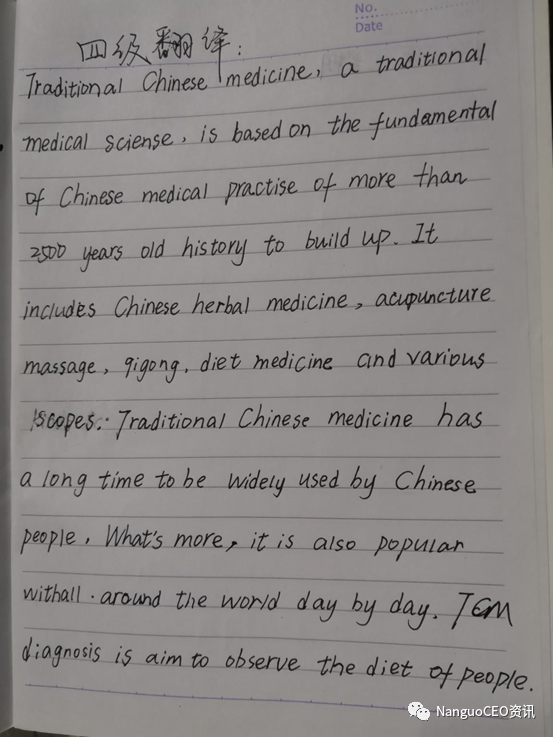 No.
Date
四级翻译:
Traditional Chinese medicine, a traditional
medical sciense, is based on the fundamental
of Chinese medical practise of more than
2500 years old history to build up. It
includes Chinese herbal medicine, acupuncture
massage, qigong, diet medicine and various
scopes. Traditional Chinese medicine has
a long time to be widely used by Chinese
people, What's more, it is also popular
withall around the world day by day. TCM
diagnosis is aim to observe the diet of people.
NanguoCEO资讯